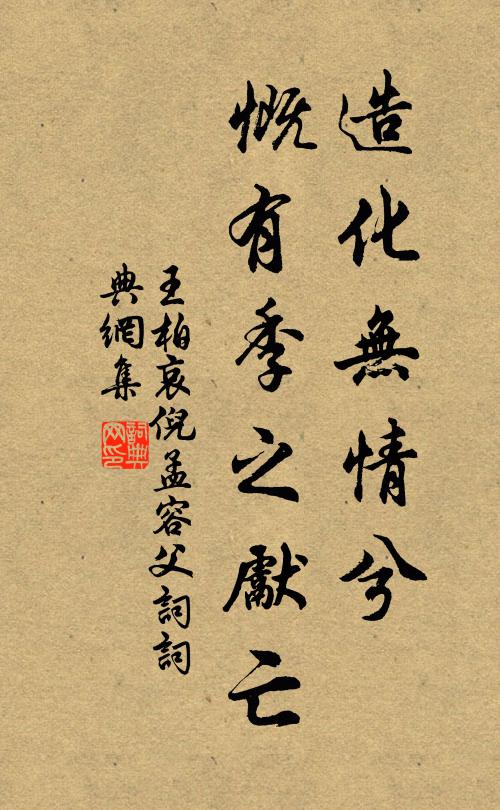 造化無情兮
慨有季之獻亡
王柏哀倪孟容父詞詞
典網集
詞典
网印